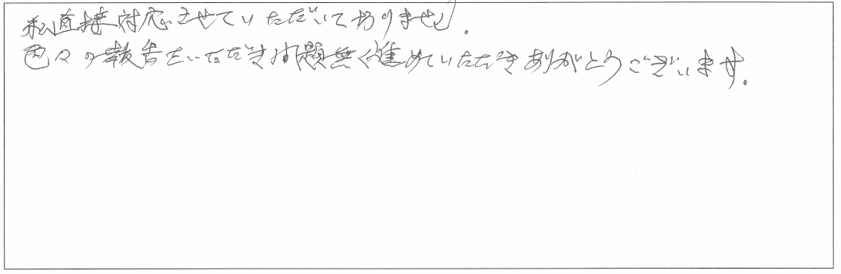 私直接対応させていただいておりません。
色々の報告をいただき問題無く進めていただきありがとうございます。